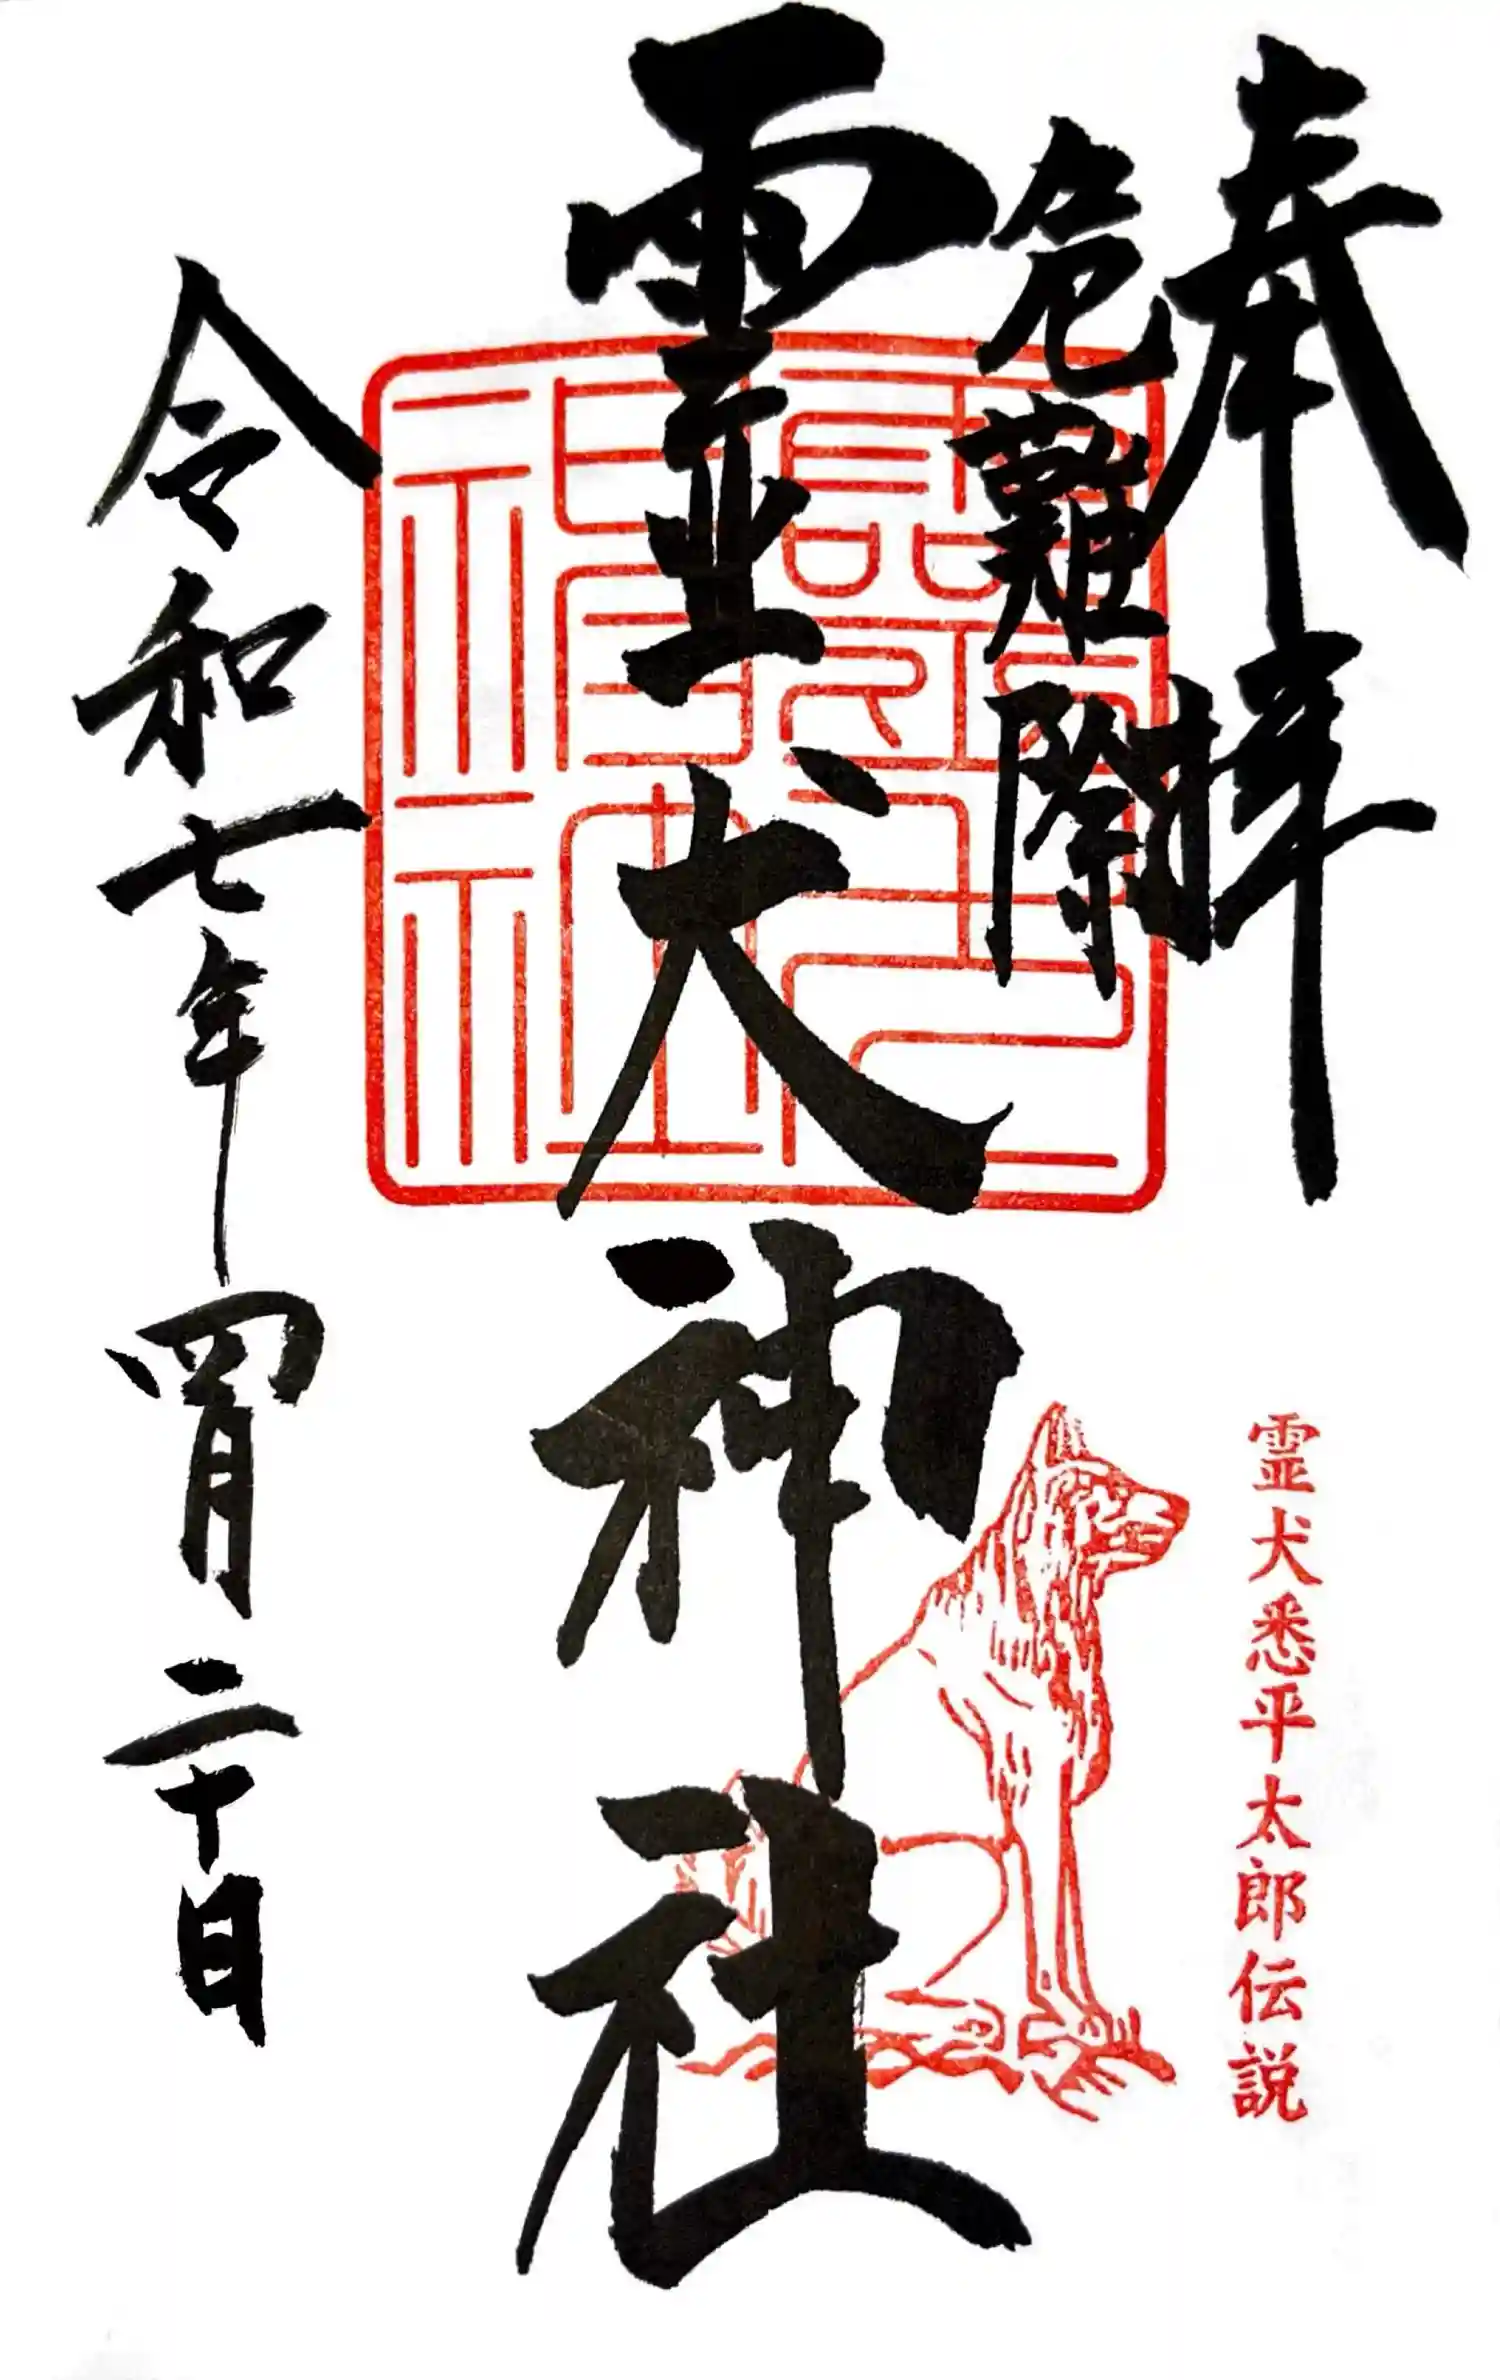 奉拝
危難除
霊犬神社
霊犬神社
令和七年四月二十日
霊犬悉平太郎伝説